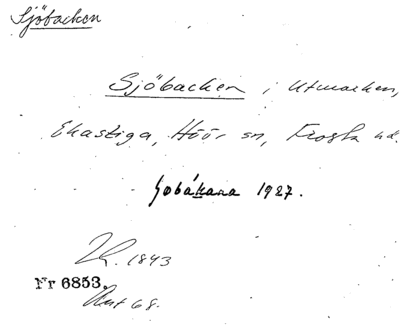 Sjöbacken
Sjöbacken i Utmarken,
Ekastiga, Höör sn, Frosta hd.
1927.
1843
Nr 6853.
68.